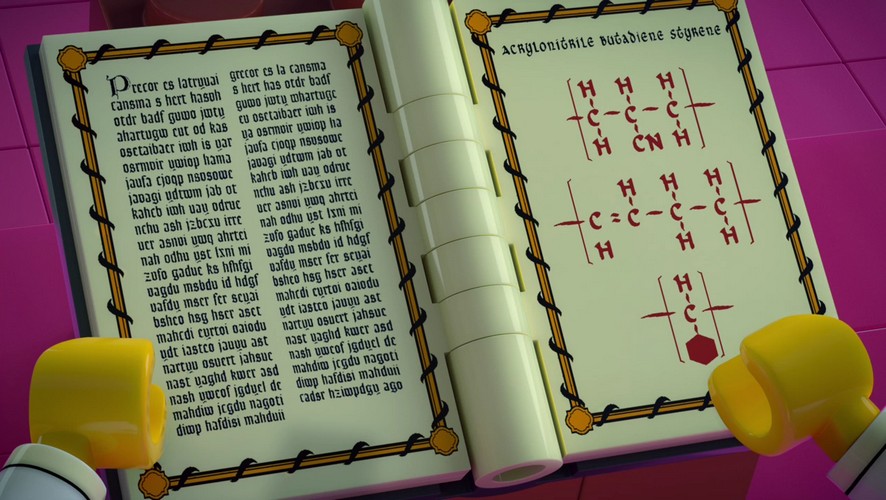 Precor es latryuai
cansma s hert hasoh
otdr badf guwo jwty
ahartugw cut od kas
osctaibacr iwh is yar
osrmoir ywiop hama
jaufa cjoqp nsosowc
javagi ydtwm jab ot
kahcb iwh uay odruc
nchu ash jzbczu irrc
ucr asnui ywq ahrtci
nah odhu yst lsni mi
zufo gaduc ks hfhfgi
uagdu msbdu id hdgf
uafdy mscr fcr scyai
bshco hsg hscr asct
mahcdi cyrtoi oaiodu
ydt iastco jauyu ast
nartyu osucrt jahsuc
nast yaghd kwcr asd
nash ywcof jgdycl dc
mahdiw jcgdu nagoti
diwp hafdisi mahduii
grecor es la cansma
s hert has otdr badf
guwo jwty whartugc
cu osctaibacr iwh is
ya osrmoir ywiop ha
jaufa cjoqp nsosowc
javagi ydtwm jab ot
kahcb iwh uay odruc
nchu ash jzbczu irrc
ucr asnui ywq ahrtci
nah odhu yst lsni mi
zufo gaduc ks hfhfgi
uagdu msbdu id hdgf
uafdy mscr fcr scyai
bshco hsg hscr asct
mahcdi cyrtoi oaiodu
ydt iastco jauyu ast
nartyu osucrt jahsuc
nast yaghd kwcr asd
nash ywcof jgdycl dc
mahdiw jcgdu nagoti
diwp hafdisi mahduii
cadsr hziwpdgy ago
Acrylonitrile Butadiene Styrene
H H H
C C C
H CN H
H H H
C = C C C
H H H
H
C